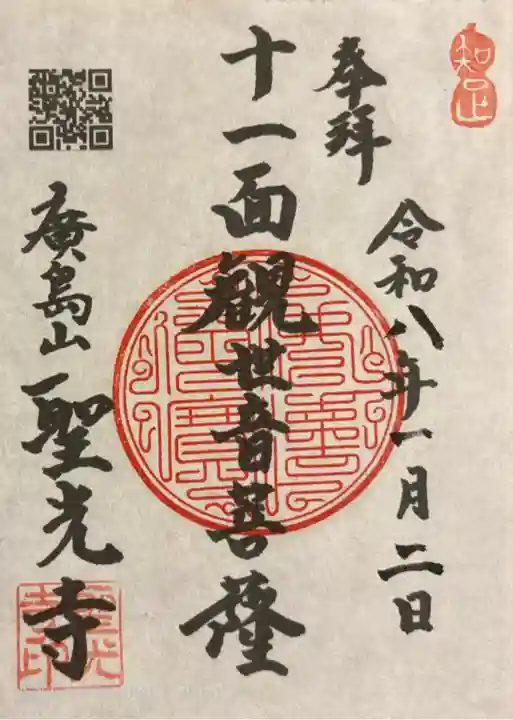 知足
奉拝
令和八年一月二日
十一面観世音菩薩
廣島山
聖光寺
聖光
寺印